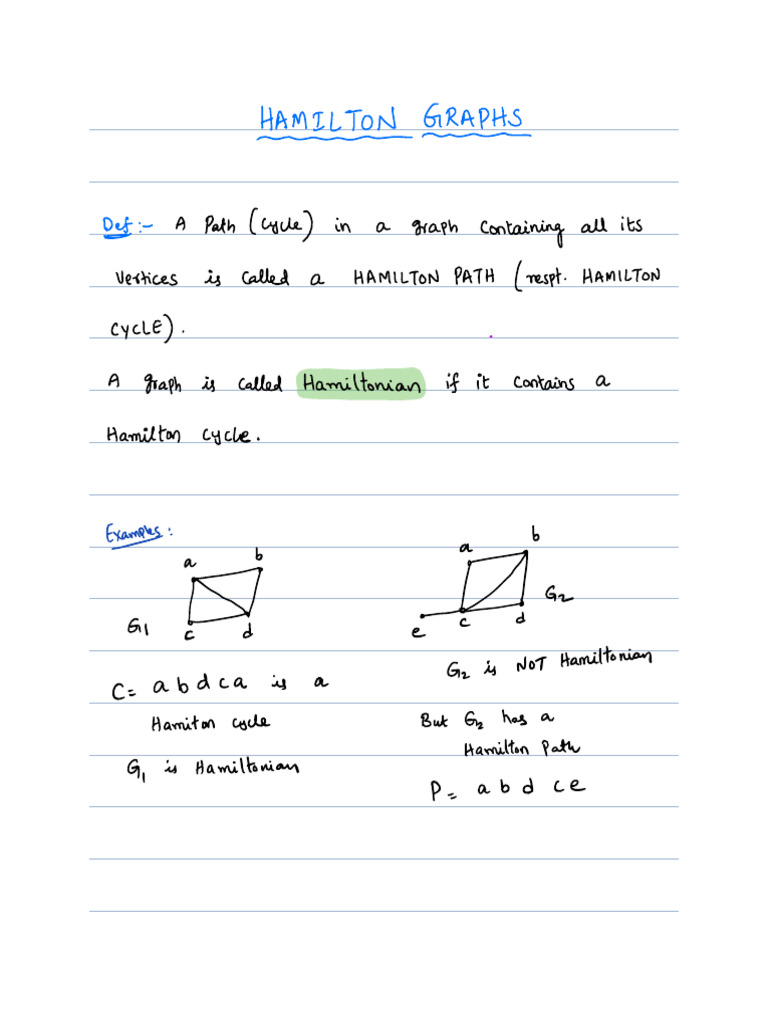 HAMILTON GRAPHS
Def:- A Path (Cycle) in a graph containing all its
vertices is called a HAMILTON PATH (respt. HAMILTON
CYCLE).
A graph is called Hamiltonian if it contains a
Hamilton cycle.
Examples:
a b
c d
G1
C= a b d c a is a
Hamiton cycle
G1 is Hamiltonian
a b
e c d
G2
G2 is NOT Hamiltonian
But G2 has a
Hamilton Path
P= a b d c e